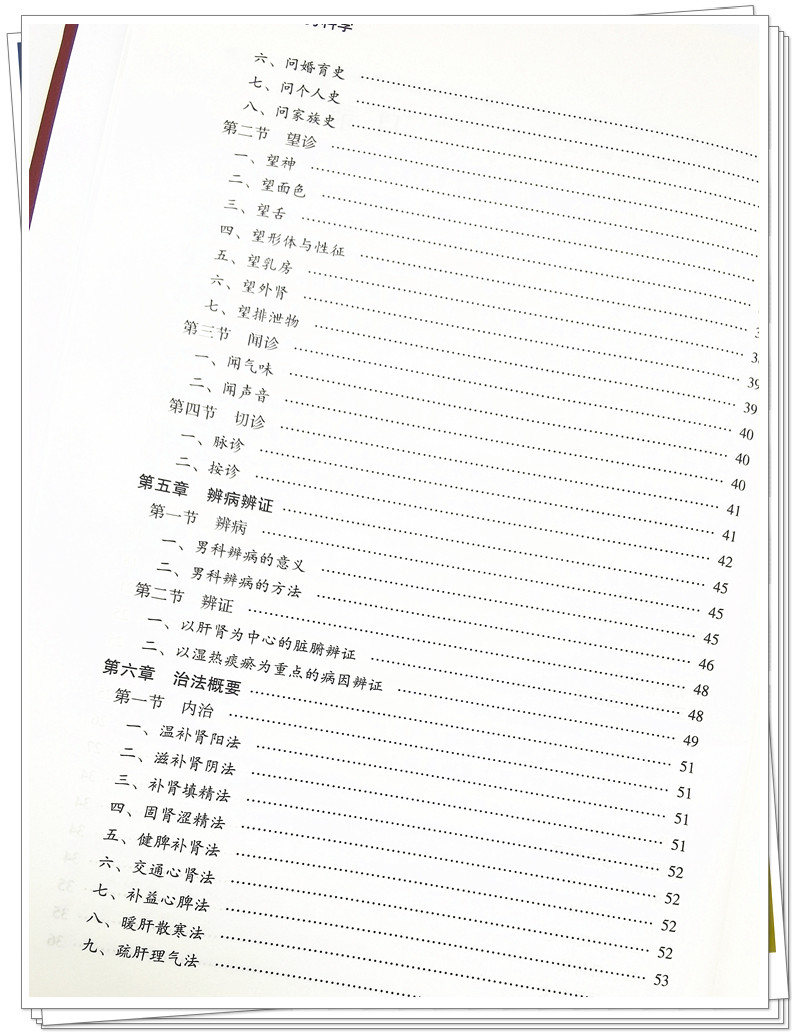 科学
六、问婚育史
七、问个人史
八、问家族史
第二节 望诊
一、望神
二、望面色
三、望舌
四、望形体与性征
五、望乳房
六、望外肾 39
七、望排泄物 39
第三节 闻诊 40
一、闻气味 40
二、闻声音 40
第四节 切诊 41
一、脉诊 41
二、按诊 42
第五章 辨病辨证 45
第一节 辨病 45
一、男科辨病的意义 45
二、男科辨病的方法 46
第二节 辨证 48
一、以肝肾为中心的脏腑辨证 48
二、以湿热痰瘀为重点的病因辨证 49
第六章 治法概要 51
第一节 内治 51
一、温补肾阳法 51
二、滋补肾阴法 51
三、补肾填精法 52
四、固肾涩精法 52
五、健脾补肾法 52
六、交通心肾法 52
七、补益心脾法 53
八、暖肝散寒法
九、疏肝理气法